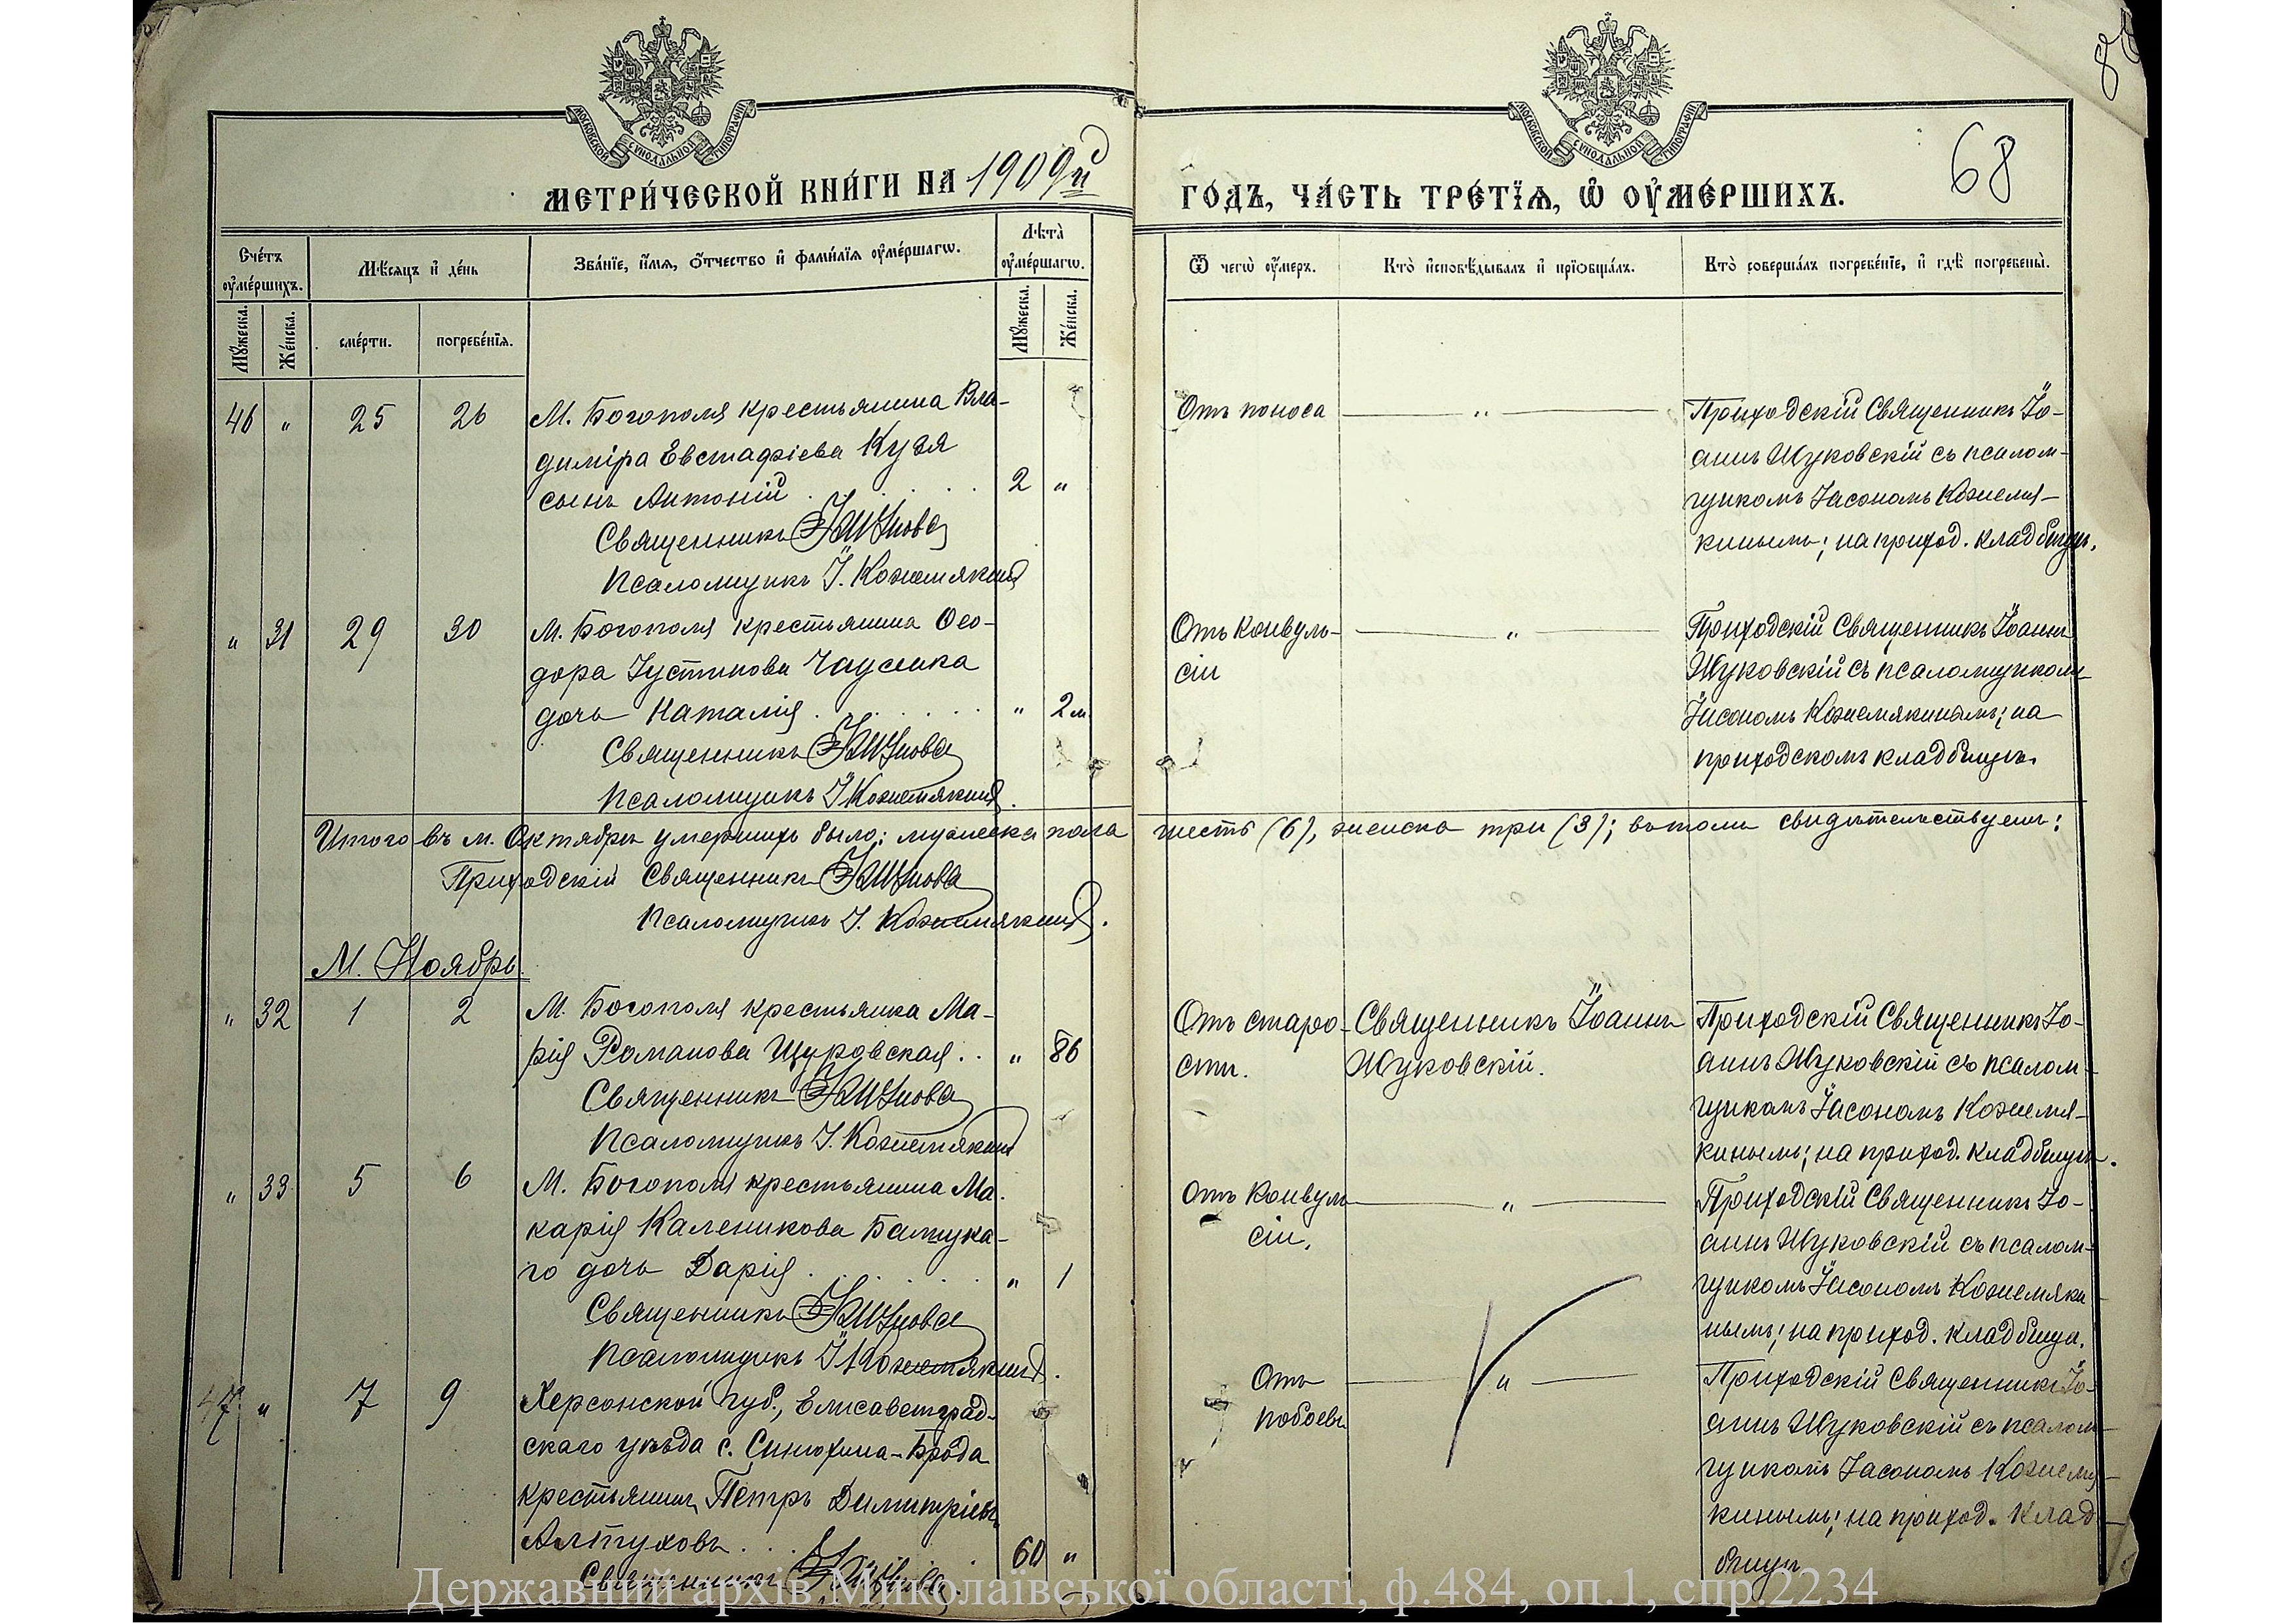 МОСКОВСКОЙ СѴНОДАЛЬНОЙ ТИПОГРАФІИ
МОСКОВСКОЙ СѴНОДАЛЬНОЙ ТИПОГРАФІИ
68
МЕТРИ́ЧЕСКОЙ КНИ́ГИ НА 1909й ГО́ДЪ, ЧА́СТЬ ТРЕ́ТЇѦ, Ѡ ОУ҆МЕ́РШИХЪ.
Сче́тъ оу҆ме́ршихъ.
Мѣ́сѧцъ и҆ де́нь
Зва́нїе, и҆́мѧ, ѻ҆́тчество и҆ фами́лїѧ оу҆ме́ршагѡ.
Лѣта̀ оу҆ме́ршагѡ.
Ѿ чегѡ̀ оу҆́меръ.
Кто̀ и҆сповѣ́дывалъ и҆ прїѡбща́лъ.
Кто̀ соверша́лъ погребе́нїе, и҆ гдѣ̀ погребены̀.
Мꙋ́жеска.
Же́нска.
сме́рти.
погребе́нїѧ.
Мꙋ́жеска.
Же́нска.
46 " 25 26 М. Богополя крестьянина Вла-
диміра Евстафіева Кузя
сынъ Антоній . . . . 2 "
Священникъ
Псаломщикъ І. Кожемякинъ
Отъ поноса "
Приходскій Священникъ Іо-
аннъ Жуковскій съ псалом-
щикомъ Іасономъ Кожемя-
кинымъ; на приход. кладбищѣ.
" 31 29 30 М. Богополя крестьянина Ѳео-
дора Іустинова Чаусенка
дочь Наталія . . . . " 2 м.
Священникъ
Псаломщикъ І. Кожемякинъ.
Отъ конвуль- "
сіи
Приходскій Священникъ Іоаннъ
Жуковскій съ псаломщикомъ
Іасономъ Кожемякинымъ; на
приходскомъ кладбищѣ.
Итого въ м. Октябрѣ умершихъ было: мужеска пола шесть (6), женска три (3); въ томъ свидѣтельствуемъ:
Приходскій Священникъ
Псаломщикъ І. Кожемякинъ.
М. Ноябрь
" 32 1 2 М. Богополя крестьянка Ма-
рія Романова Щуровская . . " 86
Священникъ
Псаломщикъ І. Кожемякинъ
Отъ старо-
сти.
Священникъ Іоаннъ
Жуковскій.
Приходскій Священникъ Іо-
аннъ Жуковскій съ псалом-
щикомъ Іасономъ Кожемя-
кинымъ; на приход. кладбищѣ.
" 33 5 6 М. Богополя крестьянина Ма-
карія Каленикова
го дочь Дарія . . . . " 1
Священникъ
Псаломщикъ І. Кожемякинъ.
Отъ конвуль "
сіи.
Приходскій Священникъ Іо-
аннъ Жуковскій съ псалом-
щикомъ Іасономъ Кожемяки-
нымъ; на приход. кладбищѣ.
47 " 7 9 Херсонской губ., Елисаветград-
скаго уѣзда с. Синюхина-Брода
крестьянинъ Петръ Димитріевъ
Алтуховъ . . . 60 "
Священникъ
Отъ "
побоевъ
Приходскій Священникъ Іо-
аннъ Жуковскій съ псалом-
щикомъ Іасономъ Кожемя-
кинымъ; на приход. клад-
бищѣ
Державний архів Миколаївської області, ф.484, оп.1, спр.2234